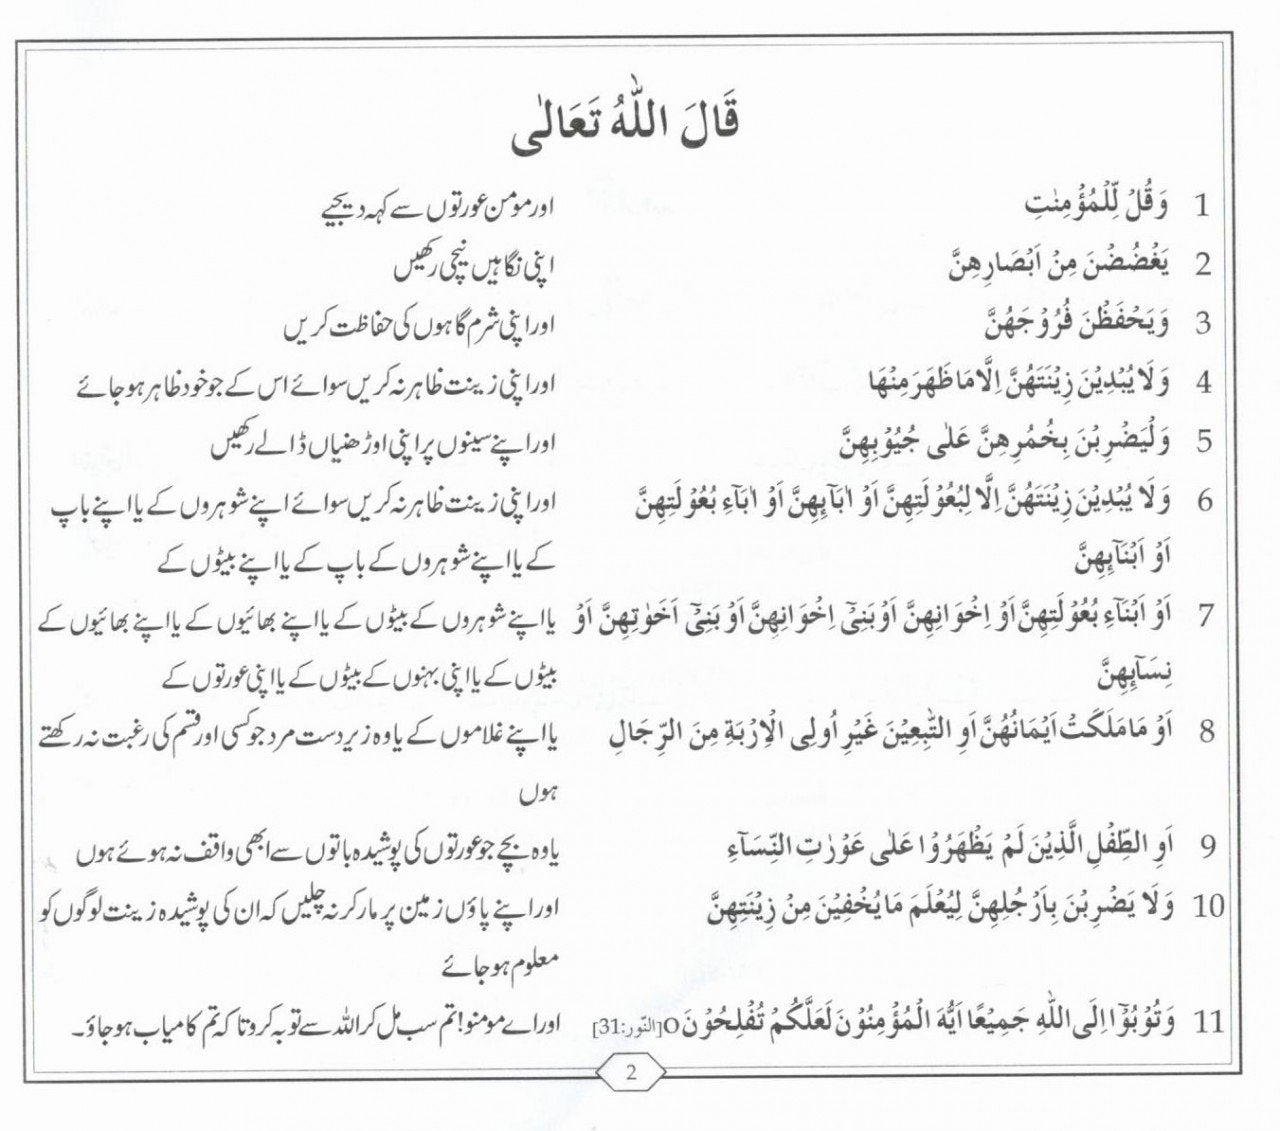 قَالَ اللّٰهُ تَعَالٰى
1 وَقُلْ لِّلْمُؤْمِنٰتِ اور مومن عورتوں سے کہہ دیجیے
2 يَغْضُضْنَ مِنْ اَبْصَارِهِنَّ اپنی نگاہیں نیچی رکھیں
3 وَيَحْفَظْنَ فُرُوْجَهُنَّ اور اپنی شرم گاہوں کی حفاظت کریں
4 وَلَا يُبْدِيْنَ زِيْنَتَهُنَّ اِلَّا مَا ظَهَرَ مِنْهَا اور اپنی زینت ظاہر نہ کریں سوائے اس کے جو خود ظاہر ہو جائے
5 وَلْيَضْرِبْنَ بِخُمُرِهِنَّ عَلٰى جُيُوْبِهِنَّ اور اپنے سینوں پر اپنی اوڑھنیاں ڈالے رکھیں
6 وَلَا يُبْدِيْنَ زِيْنَتَهُنَّ اِلَّا لِبُعُوْلَتِهِنَّ اَوْ اٰبَآئِهِنَّ اَوْ اٰبَآءِ بُعُوْلَتِهِنَّ اور اپنی زینت ظاہر نہ کریں سوائے اپنے شوہروں کے یا اپنے باپ
اَوْ اَبْنَآئِهِنَّ کے یا اپنے شوہروں کے باپ کے یا اپنے بیٹوں کے
7 اَوْ اَبْنَآءِ بُعُوْلَتِهِنَّ اَوْ اِخْوَانِهِنَّ اَوْ بَنِىْٓ اِخْوَانِهِنَّ اَوْ بَنِىْٓ اَخَوٰتِهِنَّ اَوْ یا اپنے شوہروں کے بیٹوں کے یا اپنے بھائیوں کے یا اپنے بھائیوں کے
نِسَآئِهِنَّ بیٹوں کے یا اپنی بہنوں کے بیٹوں کے یا اپنی عورتوں کے
8 اَوْ مَا مَلَكَتْ اَيْمَانُهُنَّ اَوِ التّٰبِعِيْنَ غَيْرِ اُولِى الْاِرْبَةِ مِنَ الرِّجَالِ یا اپنے غلاموں کے یا وہ زیر دست مرد جو کسی اور قسم کی رغبت نہ رکھتے
ہوں
9 اَوِ الطِّفْلِ الَّذِيْنَ لَمْ يَظْهَرُوْا عَلٰى عَوْرٰتِ النِّسَآءِ یا وہ بچے جو عورتوں کی پوشیدہ باتوں سے ابھی واقف نہ ہوئے ہوں
10 وَلَا يَضْرِبْنَ بِاَرْجُلِهِنَّ لِيُعْلَمَ مَا يُخْفِيْنَ مِنْ زِيْنَتِهِنَّ اور اپنے پاؤں زمین پر مار کر نہ چلیں کہ ان کی پوشیدہ زینت لوگوں کو
معلوم ہو جائے
11 وَتُوْبُوْٓا اِلَى اللّٰهِ جَمِيْعًا اَيُّهَ الْمُؤْمِنُوْنَ لَعَلَّكُمْ تُفْلِحُوْنَ O [النّور:31] اور اے مومنو! تم سب مل کر اللہ سے توبہ کرو تا کہ تم کامیاب ہو جاؤ۔
2